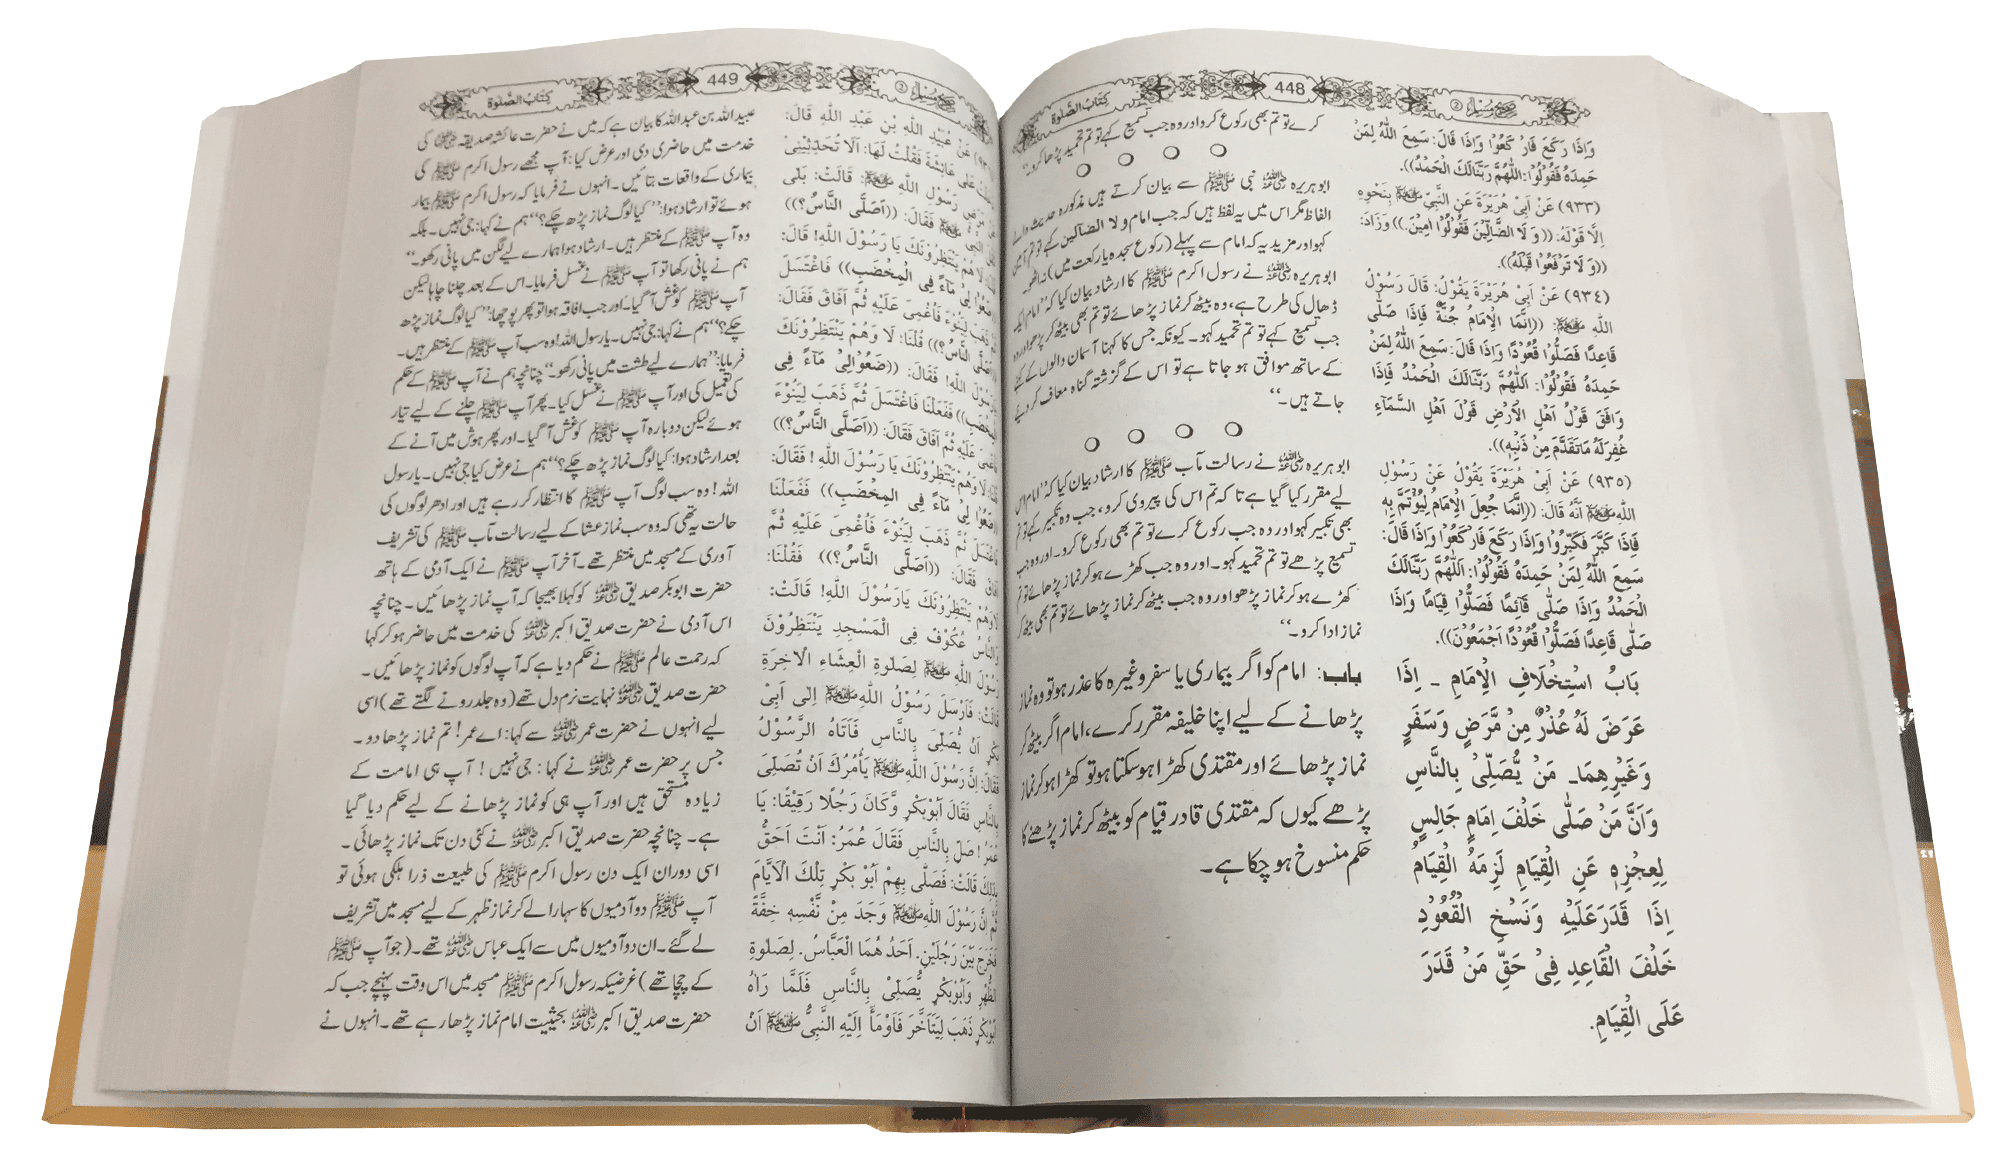 صحیح مسلم ②
448
کتابُ الصَّلوٰة
وَاِذَا رَكَعَ فَارْكَعُوْا وَاِذَا قَالَ: سَمِعَ اللّٰهُ لِمَنْ
حَمِدَهٗ فَقُوْلُوْا: اَللّٰهُمَّ رَبَّنَالَكَ الْحَمْدُ)).
(٩٣٣) عَنْ اَبِیْ هُرَيْرَةَ عَنِ النَّبِیِّ ﷺ بِنَحْوِهٖ
اِلَّا قَوْلَهٗ: ((وَ لَا الضَّالِّيْنَ فَقُوْلُوْا اٰمِيْنَ.)) وَزَادَ:
((وَ لَا تَرْفَعُوْا قَبْلَهٗ)).
(٩٣٤) عَنْ اَبِیْ هُرَيْرَةَ يَقُوْلُ: قَالَ رَسُوْلُ
اللّٰهِ ﷺ: ((اِنَّمَا الْاِمَامُ جُنَّةٌ فَاِذَا صَلّٰی
قَاعِدًا فَصَلُّوْا قُعُوْدًا وَاِذَا قَالَ: سَمِعَ اللّٰهُ لِمَنْ
حَمِدَهٗ فَقُوْلُوْا: اَللّٰهُمَّ رَبَّنَالَكَ الْحَمْدُ فَاِذَا
وَافَقَ قَوْلُ اَهْلِ الْاَرْضِ قَوْلَ اَهْلِ السَّمَآءِ
غُفِرَلَهٗ مَاتَقَدَّمَ مِنْ ذَنْبِهٖ)).
(٩٣٥) عَنْ اَبِیْ هُرَيْرَةَ يَقُوْلُ عَنْ رَسُوْلِ
اللّٰهِ ﷺ اَنَّهٗ قَالَ: ((اِنَّمَا جُعِلَ الْاِمَامُ لِيُؤْتَمَّ بِهٖ
فَاِذَا كَبَّرَ فَكَبِّرُوْا وَاِذَا رَكَعَ فَارْكَعُوْا وَاِذَا قَالَ:
سَمِعَ اللّٰهُ لِمَنْ حَمِدَهٗ فَقُوْلُوْا: اَللّٰهُمَّ رَبَّنَالَكَ
الْحَمْدُ وَاِذَا صَلّٰی قَآئِمًا فَصَلُّوْا قِيَامًا وَاِذَا
صَلّٰی قَاعِدًا فَصَلُّوْا قُعُوْدًا اَجْمَعُوْنَ)).
بَابُ اسْتِخْلَافِ الْاِمَامِ ـ اِذَا
عَرَضَ لَهٗ عُذْرٌ مِنْ مَّرَضٍ وَسَفَرٍ
وَغَيْرِهِمَا۔ مَنْ يُّصَلِّیْ بِالنَّاسِ
وَاَنَّ مَنْ صَلّٰی خَلْفَ اِمَامٍ جَالِسٍ
لِعِجْزِهٖ عَنِ الْقِيَامِ لَزِمَهُ الْقِيَامُ
اِذَا قَدَرَعَلَيْهِ وَنَسْخِ الْقُعُوْدِ
خَلْفَ الْقَاعِدِ فِیْ حَقِّ مَنْ قَدَرَ
عَلَی الْقِيَامِ.
کرے تو تم بھی رکوع کرو اور وہ جب تسمیع کہے تو تم تحمید پڑھا کرو۔“
ابو ہریرہ رضی اللہ عنہ نبی ﷺ سے بیان کرتے ہیں مذکورہ حدیث والے
الفاظ مگر اس میں یہ لفظ ہیں کہ جب امام ولا الضالین کہے تو تم آمین
کہو اور مزید یہ کہ امام سے پہلے (رکوع سجدہ یا رکعت میں) نہ اٹھو۔
ابو ہریرہ رضی اللہ عنہ نے رسول اکرم ﷺ کا ارشاد بیان کیا کہ ”امام ایک
ڈھال کی طرح ہے، وہ بیٹھ کر نماز پڑھائے تو تم بھی بیٹھ کر پڑھو اور وہ
جب تسمیع کہے تو تم تحمید کہو۔ کیونکہ جس کا کہنا آسمان والوں کے کہنے
کے ساتھ موافق ہو جاتا ہے تو اس کے گزشتہ گناہ معاف کر دیے
جاتے ہیں۔“
ابو ہریرہ رضی اللہ عنہ نے رسالت مآب ﷺ کا ارشاد بیان کیا کہ ”امام اس
لیے مقرر کیا گیا ہے تا کہ تم اس کی پیروی کرو، جب وہ تکبیر کہے تو تم
بھی تکبیر کہو اور وہ جب رکوع کرے تو تم بھی رکوع کرو۔ اور وہ جب
تسمیع پڑھے تو تم تحمید کہو۔ اور وہ جب کھڑے ہو کر نماز پڑھائے تو تم
کھڑے ہو کر نماز پڑھو اور وہ جب بیٹھ کر نماز پڑھائے تو تم بھی بیٹھ کر
نماز ادا کرو۔“
باب: امام کو اگر بیماری یا سفر وغیرہ کا عذر ہو تو وہ نماز
پڑھانے کے لیے اپنا خلیفہ مقرر کرے، امام اگر بیٹھ کر
نماز پڑھائے اور مقتدی کھڑا ہو سکتا ہو تو کھڑا ہو کر نماز
پڑھے کیوں کہ مقتدی قادر قیام کو بیٹھ کر نماز پڑھنے کا
حکم منسوخ ہو چکا ہے۔
صحیح مسلم ②
449
کتابُ الصَّلوٰة
عَنْ عُبَيْدِ اللّٰهِ بْنِ عَبْدِ اللّٰهِ قَالَ:
عَلٰی عَائِشَةَ فَقُلْتُ لَهَا: اَلَا تُحَدِّثِيْنِیْ
رَسُوْلِ اللّٰهِ ﷺ: قَالَتْ: بَلٰی
النَّبِیُّ ﷺ فَقَالَ: ((اَصَلَّی النَّاسُ؟))
لَا هُمْ يَنْتَظِرُوْنَكَ يَا رَسُوْلَ اللّٰهِ! قَالَ:
ضَعُوْا لِیْ مَآءً فِی الْمِخْضَبِ)) فَاغْتَسَلَ
ذَهَبَ لِيَنُوْءَ فَاُغْمِیَ عَلَيْهِ ثُمَّ اَفَاقَ فَقَالَ:
اَصَلَّی النَّاسُ؟)) قُلْنَا: لَا وَهُمْ يَنْتَظِرُوْنَكَ
رَسُوْلَ اللّٰهِ! فَقَالَ: ((ضَعُوْالِیْ مَآءً فِی
الْمِخْضَبِ)) فَفَعَلْنَا فَاغْتَسَلَ ثُمَّ ذَهَبَ لِيَنُوْءَ
عَلَيْهِ ثُمَّ اَفَاقَ فَقَالَ: ((اَصَلَّی النَّاسُ؟))
لَا وَهُمْ يَنْتَظِرُوْنَكَ يَا رَسُوْلَ اللّٰهِ! فَقَالَ:
ضَعُوْا لِیْ مَآءً فِی الْمِخْضَبِ)) فَفَعَلْنَا
ثُمَّ ذَهَبَ لِيَنُوْءَ فَاُغْمِیَ عَلَيْهِ ثُمَّ
فَقَالَ: ((اَصَلَّی النَّاسُ؟)) فَقُلْنَا:
لَاوَهُمْ يَنْتَظِرُوْنَكَ يَارَسُوْلَ اللّٰهِ! قَالَتْ:
وَالنَّاسُ عُكُوْفٌ فِی الْمَسْجِدِ يَنْتَظِرُوْنَ
رَسُوْلَ اللّٰهِ ﷺ لِصَلٰوةِ الْعِشَاءِ الْاٰخِرَةِ
قَالَتْ: فَاَرْسَلَ رَسُوْلُ اللّٰهِ ﷺ اِلٰی اَبِیْ
بَكْرٍ اَنْ يُّصَلِّیَ بِالنَّاسِ فَاَتَاهُ الرَّسُوْلُ
فَقَالَ: اِنَّ رَسُوْلَ اللّٰهِ ﷺ يَأْمُرُكَ اَنْ تُصَلِّیَ
بِالنَّاسِ فَقَالَ اَبُوْبَكْرٍ وَّكَانَ رَجُلًا رَقِيْقًا: يَا
عُمَرُ! صَلِّ بِالنَّاسِ فَقَالَ عُمَرُ: اَنْتَ اَحَقُّ
بِذٰلِكَ قَالَتْ: فَصَلّٰی بِهِمْ اَبُوْ بَكْرٍ تِلْكَ الْاَيَّامَ
ثُمَّ اِنَّ رَسُوْلَ اللّٰهِ ﷺ وَجَدَ مِنْ نَّفْسِهٖ خِفَّةً
فَخَرَجَ بَيْنَ رَجُلَيْنِ. اَحَدُ هُمَا الْعَبَّاسُ. لِصَلٰوةِ
الظُّهْرِ وَاَبُوْبَكْرٍ يُّصَلِّیْ بِالنَّاسِ فَلَمَّا رَاٰهُ
اَبُوْبَكْرٍ ذَهَبَ لِيَتَأَخَّرَ فَاَوْمَأَ اِلَيْهِ النَّبِیُّ ﷺ اَنْ
عبید اللہ بن عبد اللہ کا بیان ہے کہ میں نے حضرت عائشہ صدیقہ رضی اللہ عنہا کی
خدمت میں حاضری دی اور عرض کیا: آپ مجھے رسول اکرم ﷺ کی
بیماری کے واقعات بتائیں۔ انہوں نے فرمایا کہ رسول اکرم ﷺ بیمار
ہوئے تو ارشاد ہوا: ”کیا لوگ نماز پڑھ چکے؟“ ہم نے کہا: جی نہیں۔ بلکہ
وہ آپ ﷺ کے منتظر ہیں۔ ارشاد ہوا ہمارے لیے لگن میں پانی رکھو۔“
ہم نے پانی رکھا تو آپ ﷺ نے غسل فرمایا۔ اس کے بعد چلنا چاہا لیکن
آپ ﷺ کو غش آ گیا۔ اور جب افاقہ ہوا تو پھر پوچھا: ”کیا لوگ نماز پڑھ
چکے؟“ ہم نے کہا: جی نہیں۔ یا رسول اللہ! وہ سب آپ ﷺ کے منتظر ہیں۔
فرمایا: ”ہمارے لیے طشت میں پانی رکھو۔“ چنانچہ ہم نے آپ ﷺ کے حکم
کی تعمیل کی اور آپ ﷺ نے غسل کیا۔ پھر آپ ﷺ چلنے کے لیے تیار
ہوئے لیکن دوبارہ آپ ﷺ کو غش آ گیا۔ اور پھر ہوش میں آنے کے
بعد ارشاد ہوا: کیا لوگ نماز پڑھ چکے؟“ ہم نے عرض کیا جی نہیں۔ یا رسول
اللہ! وہ سب لوگ آپ ﷺ کا انتظار کر رہے ہیں اور ادھر لوگوں کی
حالت یہ تھی کہ وہ سب نماز عشا کے لیے رسالت مآب ﷺ کی تشریف
آوری کے مسجد میں منتظر تھے۔ آخر آپ ﷺ نے ایک آدمی کے ہاتھ
حضرت ابوبکر صدیق رضی اللہ عنہ کو کہلا بھیجا کہ آپ نماز پڑھائیں۔ چنانچہ
اس آدمی نے حضرت صدیق اکبر رضی اللہ عنہ کی خدمت میں حاضر ہو کر کہا
کہ رحمت عالم ﷺ نے حکم دیا ہے کہ آپ لوگوں کو نماز پڑھائیں۔
حضرت صدیق رضی اللہ عنہ نہایت نرم دل تھے (وہ جلد رونے لگتے تھے) اسی
لیے انہوں نے حضرت عمر رضی اللہ عنہ سے کہا: اے عمر! تم نماز پڑھا دو۔
جس پر حضرت عمر رضی اللہ عنہ نے کہا: جی نہیں! آپ ہی امامت کے
زیادہ مستحق ہیں اور آپ ہی کو نماز پڑھانے کے لیے حکم دیا گیا
ہے۔ چنانچہ حضرت صدیق اکبر رضی اللہ عنہ نے کئی دن تک نماز پڑھائی۔
اسی دوران ایک دن رسول اکرم ﷺ کی طبیعت ذرا ہلکی ہوئی تو
آپ ﷺ دو آدمیوں کا سہارا لے کر نماز ظہر کے لیے مسجد میں تشریف
لے گئے۔ ان دو آدمیوں میں سے ایک عباس رضی اللہ عنہ تھے۔ (جو آپ ﷺ
کے چچا تھے) غرضیکہ رسول اکرم ﷺ مسجد میں اس وقت پہنچے جب کہ
حضرت صدیق اکبر رضی اللہ عنہ بحیثیت امام نماز پڑھا رہے تھے۔ انہوں نے